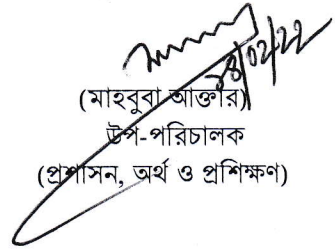 ২৪/০২/২২
(মাহবুবা আক্তার)
উপ-পরিচালক
(প্রশাসন, অর্থ ও প্রশিক্ষণ)